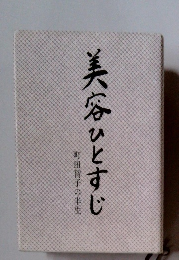 美容ひとすじ
町田菊子の半生